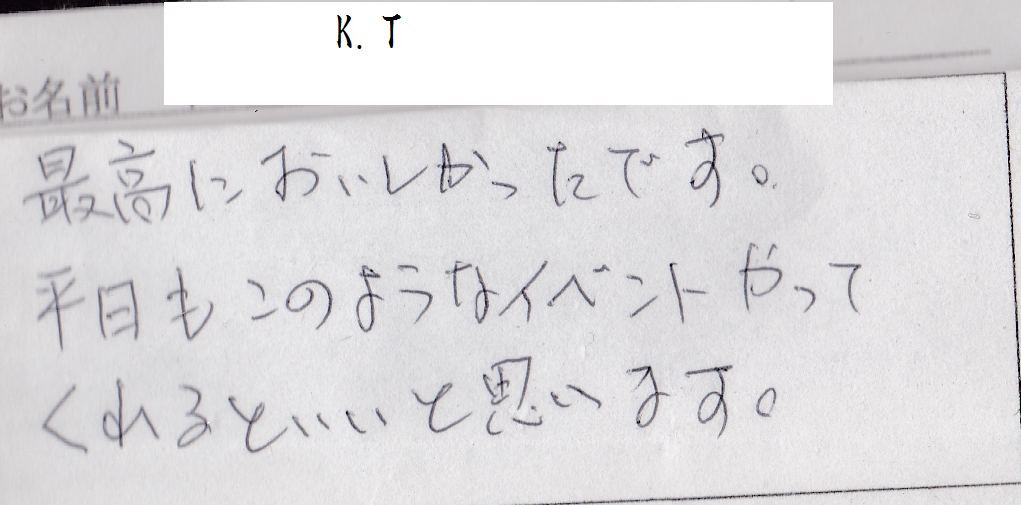 K. T
お名前
最高においしかったです。
平日もこのようなイベントやって
くれるといいと思います。